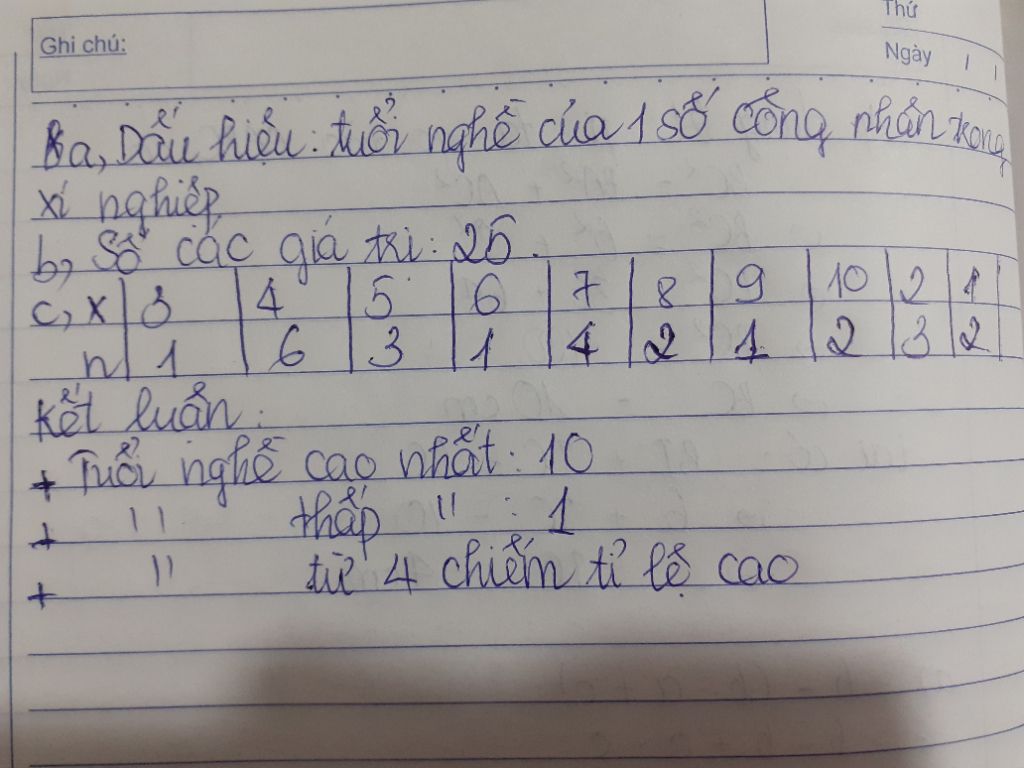 Thứ
Ghi chú:
Ngày / /
a, Dấu hiệu: tuổi nghề của 1 số công nhân trong
xí nghiệp
b, Số các giá trị: 25.
c, x | 3 | 4 | 5 | 6 | 7 | 8 | 9 | 10 | 2 | 1
n | 1 | 6 | 3 | 1 | 4 | 2 | 1 | 2 | 3 | 2
Kết luận:
+ Tuổi nghề cao nhất: 10
+ " thấp " : 1
+ " từ 4 chiếm tỉ lệ cao